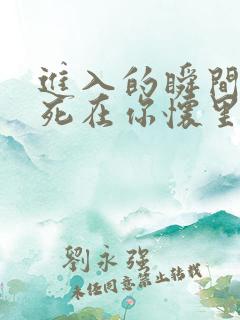 進入的瞬間
死在你懷里
劉永强
未任同意禁止转载